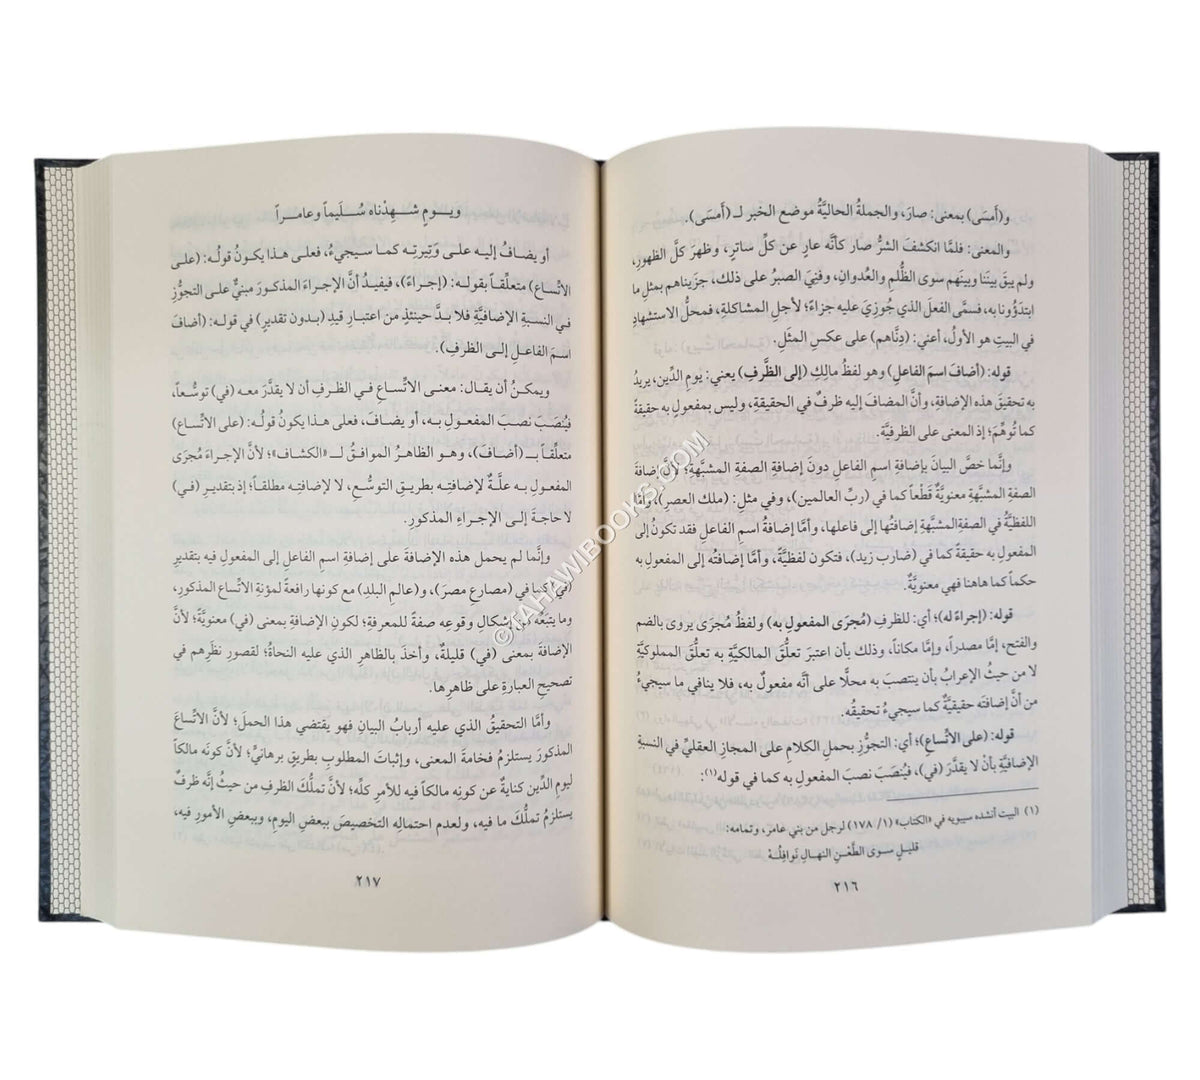 و(أمسَى) بمعنى: صارَ، والجملةُ الحاليَّةُ موضع الخبر لـ (أَمسَى).
والمعنى: فلمَّا انكشفَ الشرُّ صار كأنَّه عارٍ عن كلِّ ساترٍ، وظهرَ كلَّ الظهورِ،
ولم يبقَ بيننا وبينَهم سوى الظُّلمِ والعُدوانِ، وفنِيَ الصبرُ على ذلك، جزيناهم بمثلِ ما
ابتدَؤُونا به، فسمَّى الفعلَ الذي جُوزِيَ عليه جزاءً؛ لأجلِ المشاكلةِ، فمحلُّ الاستشهادِ
في البيتِ هو الأولُ، أعني: (دِنَّاهم) على عكسِ المثَلِ.
قوله: (أضافَ اسمَ الفاعلِ) وهو لفظُ مالِكِ (إلى الظَّرفِ) يعني: يومِ الدِّين، يريدُ
به تحقيقَ هذه الإضافةِ، وأنَّ المضافَ إليه ظرفٌ في الحقيقةِ، وليس بمفعولٍ به حقيقةً
كما تُوهِّمَ؛ إذ المعنى على الظرفيَّة.
وإنَّما خصَّ البيانَ بإضافةِ اسمِ الفاعلِ دونَ إضافةِ الصفةِ المشبَّهةِ؛ لأنَّ إضافةَ
الصفةِ المشبَّهةِ معنويَّةٌ قَطْعاً كما في (ربِّ العالمين)، وفي مثلِ: (ملك العصرِ)، وأمَّا
اللفظيَّةُ في الصفةِ المشبَّهةِ إضافتُها إلى فاعلها، وأمَّا إضافةُ اسمِ الفاعلِ فقد تكونُ إلى
المفعولِ به حقيقةً كما في (ضارب زيد)، فتكون لفظيَّةً، وأمَّا إضافتُه إلى المفعول به
حكماً كما هاهنا فهي معنويَّةٌ.
قوله: (إجراءً له)؛ أي: للظرفِ (مُجرَى المفعولِ به) ولفظُ مُجرَى يروى بالضم
والفتحِ، إمَّا مصدراً، وإمَّا مكاناً، وذلك بأن اعتبرَ تعلُّقَ المالكيَّةِ به تعلُّقَ المملوكيَّةِ
لا من حيثُ الإعرابُ بأن ينتصبَ به محلًّا على أنَّه مفعولٌ به، فلا ينافي ما سيجيءُ
من أنَّ إضافتَه حقيقيَّةٌ كما سيجيءُ تحقيقُه.
قوله: (على الاتِّساعِ)؛ أي: التجوُّزِ بحملِ الكلامِ على المجازِ العقليِّ في النسبةِ
الإضافيَّةِ بأن لا يقدَّرَ (في)، فيُنصَبَ نصبَ المفعولِ به كما في قوله(١):
(١) البيت أنشده سيبويه في «الكتاب» (١/ ١٧٨) لرجل من بني عامر، وتمامه:
قليلٍ سوى الطَّعْنِ النهالِ نَوافِلُهْ
٢١٦
ويـومٍ شـهِدْناه سُـلَيماً وعامـراً
أو يضافُ إليه علـى وَتِيرتِـه كمـا سيجيءُ، فعلى هذا يكونُ قولُـه: (على
الاتِّساعِ) متعلِّقـاً بقولـه: (إجراءً)، فيفيدُ أنَّ الإجـراءَ المذكـورَ مبنيٌّ علـى التجوُّزِ
فـي النسبةِ الإضافيَّةِ فلا بـدَّ حينئـذٍ مـن اعتبـارِ قيـدِ (بـدون تقديرٍ) في قولـه: (أضافَ
اسمَ الفاعـلِ إلـى الظرفِ).
ويمكـنُ أن يقال: معنـى الاتِّسـاعِ فـي الظرفِ أن لا يقدَّرَ معـه (في) توسُّعـاً،
فيُنصَـبَ نصـبَ المفعـولِ بـه، أو يضـافَ، فعلى هـذا يكونُ قولُـه: (على الاتِّساعِ)
متعلِّقـاً بــ (أضافَ)، وهـو الظاهرُ الموافقُ لــ «الكشاف»؛ لأنَّ الإجـراءَ مُجرَى
المفعولِ بـه علـةٌ لإضافتِـه بطريقِ التوسُّعِ، لا لإضافتِه مطلقـاً؛ إذ بتقديرِ (في)
لا حاجـةَ إلـى الإجـراءِ المذكـورِ.
وإنَّما لم يحمل هذه الإضافةَ على إضافةِ اسمِ الفاعلِ إلى المفعول فيه بتقديرِ
(في) كما في (مصارعِ مصرَ)، و(عالمِ البلدِ) مع كونها رافعةً لمؤنةِ الاتِّساعِ المذكورِ،
وما يتبَعُه من إشكالِ وقوعِه صفةً للمعرفةِ؛ لكونِ الإضافةِ بمعنى (في) معنويَّةً؛ لأنَّ
الإضافةَ بمعنى (في) قليلةٌ، وأخذَ بالظاهر الذي عليه النحاةُ؛ لقصورِ نظرِهم في
تصحيحِ العبارةِ على ظاهرها.
وأمَّا التحقيقُ الذي عليه أربابُ البيانِ فهو يقتضي هذا الحملَ؛ لأنَّ الاتِّساعَ
المذكورَ يستلزمُ فخامةَ المعنى، وإثباتَ المطلوبِ بطريقٍ برهانيٍّ؛ لأنَّ كونَه مالكاً
ليومِ الدِّينِ كنايةٌ عن كونِه مالكاً فيه للأمرِ كلِّه؛ لأنَّ تملُّكَ الظرفِ من حيثُ إنَّه ظرفٌ
يستلزمُ تملُّكَ ما فيه، ولعدمِ احتمالِه التخصيصَ ببعضِ اليومِ، وببعضِ الأمورِ فيه،
٢١٧
©TAHAWIBOOKS.COM